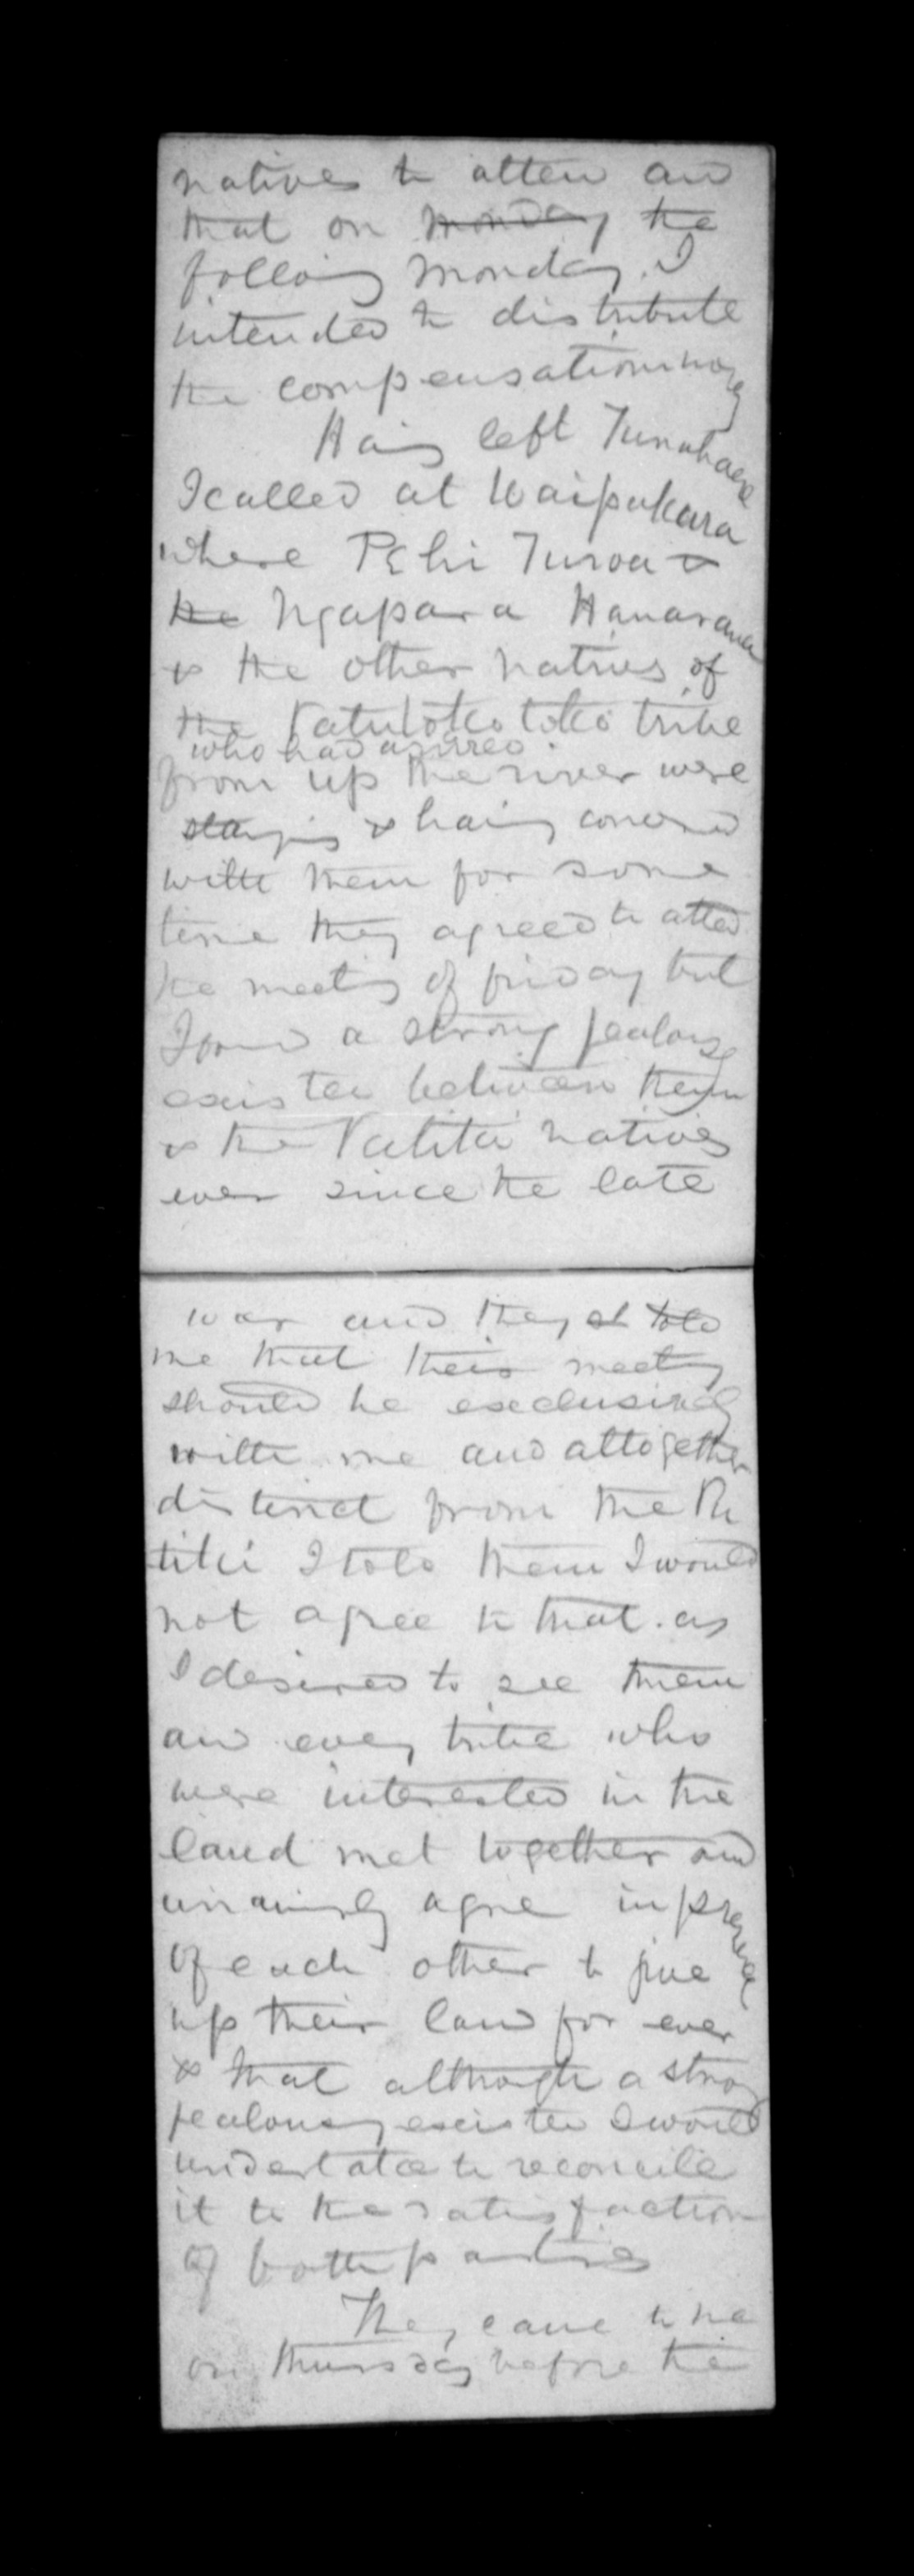 natives to atten and
that on Monday the
follong Monday. I
intended to distribute
the compensation money
Haing left Tunuhaere
I called at Waipakura
where Pehi Turoa &
the Ngapara Hanarana
& the other natives of
the Patutokotoko tribe
who had arrived
from up the river were
staying & having conversed
with them for some
time they agreed to attend
the meeting of friday but
I found a strong jealousy
existed between them
& the Putiki natives
ever since the late
war and they told
me that their meeting
should be exclusively
with me and altogether
distinct from the Pu
tiki I told them I would
not agree to that. as
I desired to see them
and every tribe who
were interested in the
land met together and
agree in presence
of each other to give
up their land for ever
& that although a strong
jealousy existed I would
undertake to reconcile
it to the satisfaction
of both parties
They came to me
on thursday before the